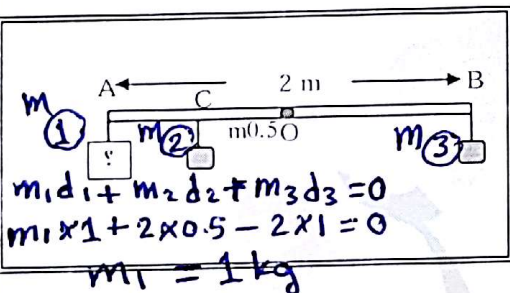 A 2 m B
m ① C
m ② m0.5 O m ③
؟
m₁d₁ + m₂d₂ + m₃d₃ = 0
m₁×1 + 2×0.5 - 2×1 = 0
m₁ = 1 kg